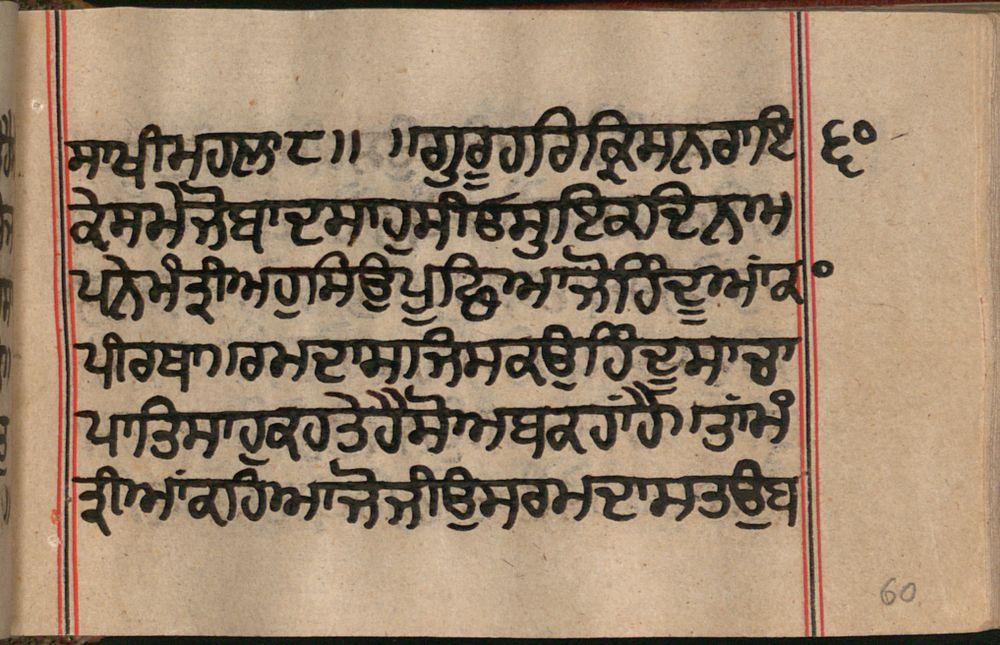 ਸਾਖੀਮਹਲਾ੮॥ ॥ਗੁਰੂਹਰਿਕ੍ਰਿਸਨਰਾਇ ੬੦
ਕੇਸਮੈਜੋਬਾਦਸਾਹੁਸੀਓਸੁਇਕਦਿਨਅ
ਪਨੇਮੰਤ੍ਰੀਅਹੁਸਿਉਪੁਛਿਆਜੋਹਿੰਦੂਆਂਕਾ
ਪੀਰਥਾ॥ਰਮਦਾਸ।ਜਿਸਕਉਹਿੰਦੂਸਾਚਾ
ਪਾਤਿਸਾਹੁਕਹਤੇਹੈਸੋਅਬਕਹਾਂਹੈ॥ਤਾਂਮੰ
ਤ੍ਰੀਆਂਕਹਿਆਜੋਜੀਉਸਰਮਦਾਸਤਉਬ
60